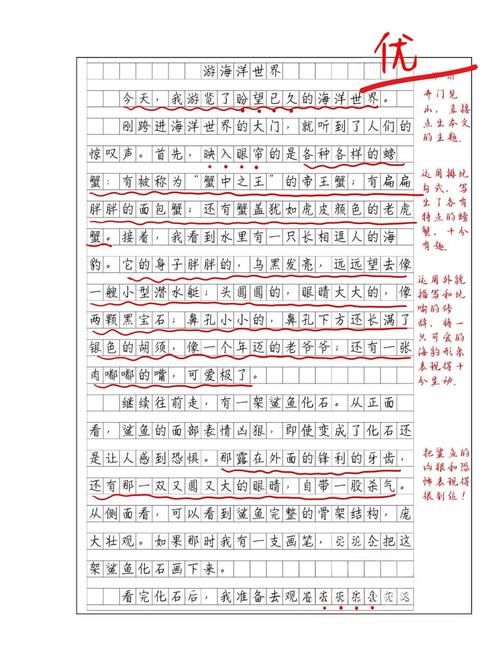 优
游海洋世界
今天，我游览了盼望已久的海洋世界。
刚跨进海洋世界的大门，就听到了人们的
惊叹声。首先，映入眼帘的是各种各样的螃
蟹：有被称为“蟹中之王”的帝王蟹；有扁扁
胖胖的面包蟹；还有蟹盖犹如虎皮颜色的老虎
蟹。接着，我看到水里有一只长相逗人的海
豹。它的身子胖胖的，乌黑发亮，远远望去像
一艘小型潜水艇；头圆圆的，眼睛大大的，像
两颗黑宝石；鼻孔小小的，鼻孔下方还长满了
银色的胡须，像一个年迈的老爷爷；还有一张
肉嘟嘟的嘴，可爱极了。
继续往前走，有一架鲨鱼化石。从正面
看，鲨鱼的面部表情凶狠，即使变成了化石还
是让人感到恐惧。那露在外面的锋利的牙齿，
还有那一双又圆又大的眼睛，自带一股杀气。
从侧面看，可以看到鲨鱼完整的骨架结构，庞
大壮观。如果那时我有一支画笔，会把这
架鲨鱼化石画下来。
看完化石后，我准备去观
开门见
山，直接
点出本文
的主题。
运用排比
句式，写
出了各有
特点的螃
蟹，十分
有趣。
运用外貌
描写和比
喻的修
辞，将一
只可爱的
海豹形象
表现得十
分生动。
把鲨鱼的
凶狠和恐
怖表现得
很到位！